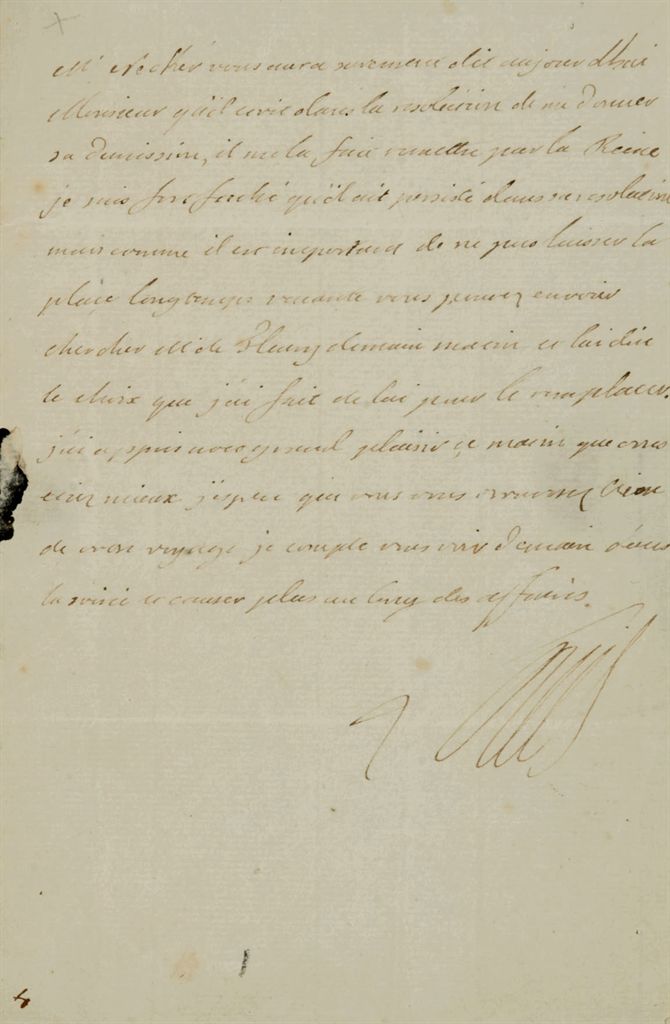 Mr Necker vous aura surement dit aujourdhui
Monsieur qu'il etoit dans la resolution de me donner
sa demission, il me la fait remettre par la Reine
je suis fort faché qu'il ait persisté dans sa resolution
mais comme il est important de ne pas laisser la
place longtemps vacante vous pouvez envoier
chercher M. de Fleury demain matin et lui dire
le choix que j'ai fait de lui pour le remplacer.
j'ai appris avec grand plaisir ce matin que vous
etiez mieux j'espere que vous vous trouverez bien
de votre voyage je compte vous voir demain dans
la soirée et causer plus au long des affaires.